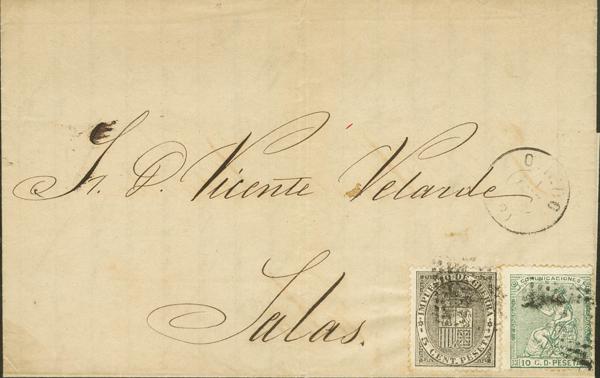 Sr. D. Vicente Velarde
Salas.
IMPUESTO DE GUERRA
5 CENT. PESETA
COMUNICACIONES
10 C. D. PESETA